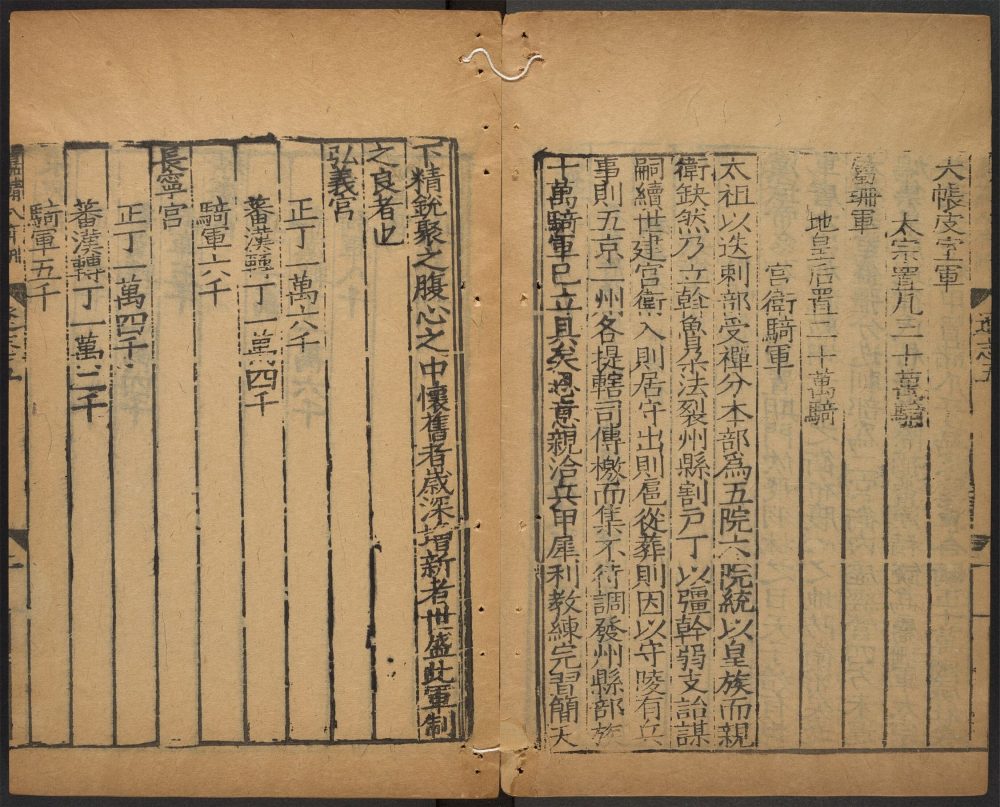 大帳皮室軍
太宗置凡三十萬騎
屬珊軍
地皇后置二十萬騎
宮衛騎軍
太祖以迭剌部受禪分本部爲五院六院統以皇族而親
衛缺然乃立斡魯朶法裂州縣割戶丁以彊幹弱支詒謀
嗣續世建宮衛入則居守出則扈從葬則因以守陵有兵
事則五京二州各提轄司傳檄而集不待調發州縣部族
十萬騎軍已立具矣恩意親洽兵甲犀利教練完習簡天
下精銳聚之腹心之中懷舊者歲深增新者世盛此軍制
之良者也
弘義宮
正丁一萬六千
蕃漢轉丁一萬四千
騎軍六千
長寧宮
正丁一萬四千
蕃漢轉丁一萬二千
騎軍五千
嘉靖八年刊